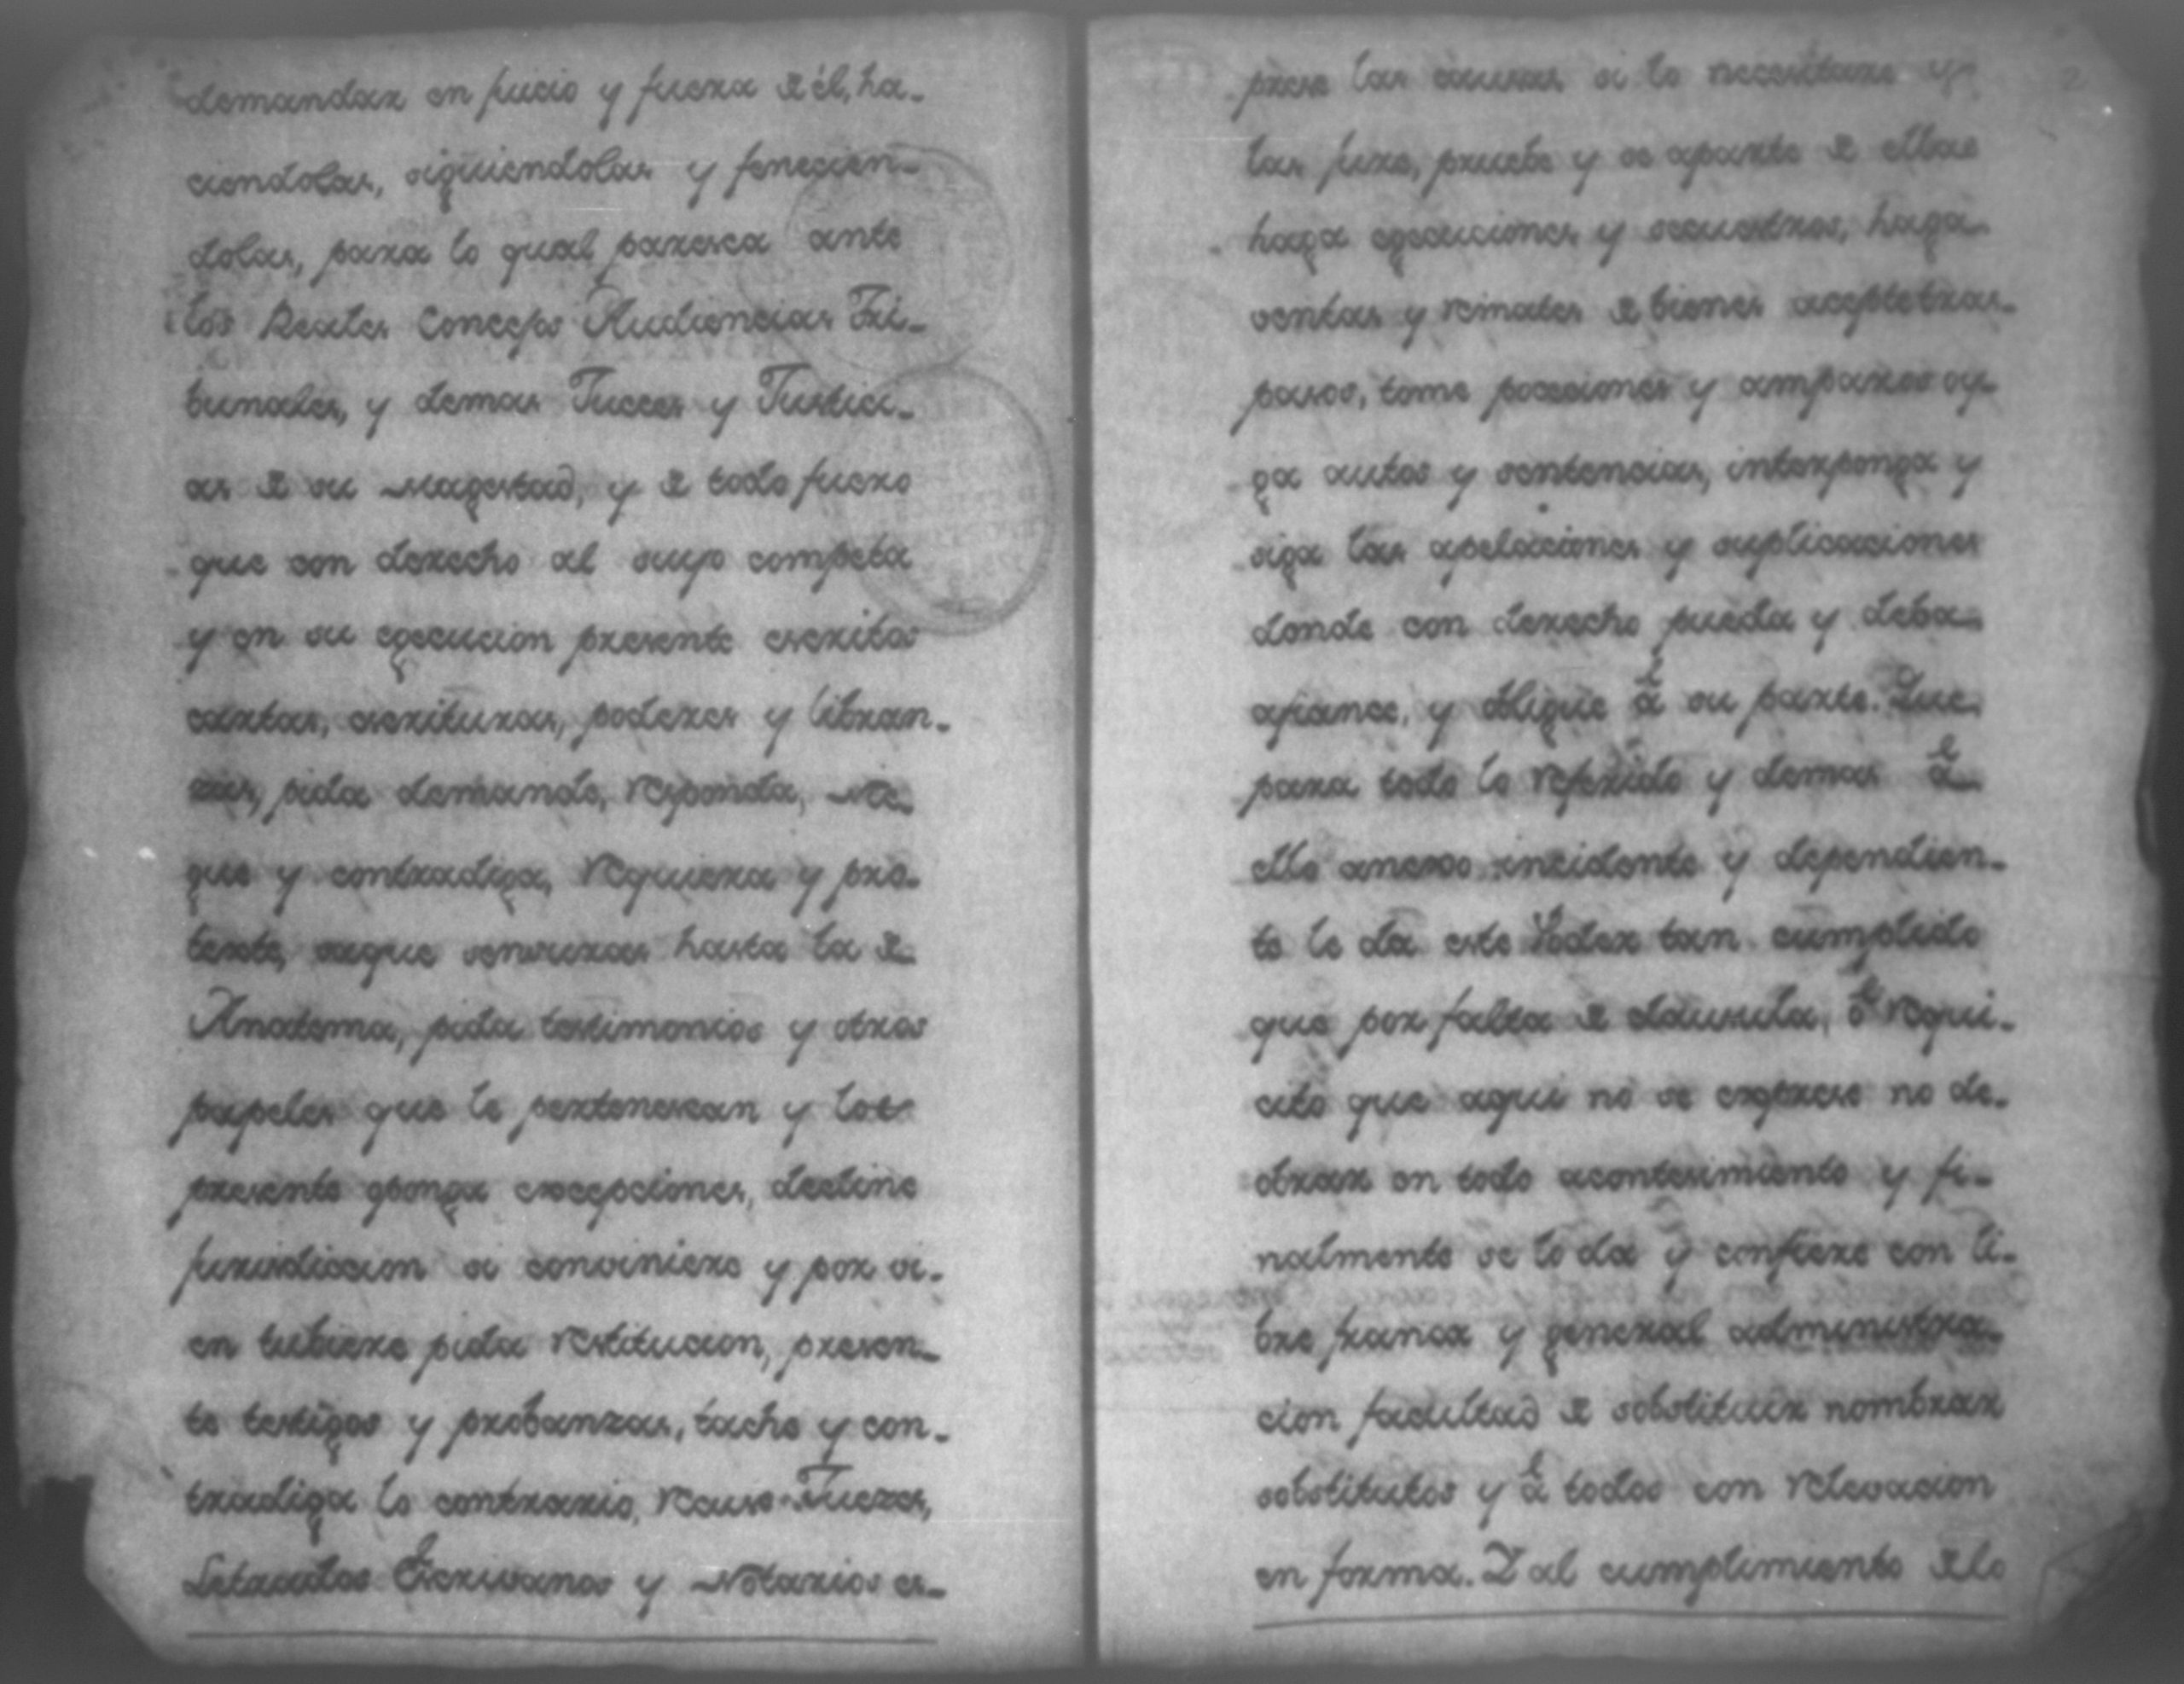 demandar en juicio y fuera de él, ha-
ciendolas, siguiendolas y fenecien-
dolas, para lo qual paresca ante
los Reales Concejos Audiencias Tri-
bunales, y demas Jueces y Justici-
as de su Magestad, y de todo fuero
que con derecho al suyo competa
y en su egecucion presente escritos
cartas, escrituras, poderes y libran-
zas, pida demande, responda, Nie-
gue y contradiga, Requiera y pro-
texte, saque sensuras hasta la de
Anatema, pida testimonios y otros
papeles que le pertenescan y los
presente oponga excepciones, decline
jurisdiccion si conviniere y por si-
en tubiere pida restitucion, presen-
te testigos y probanzas, tache y con-
tradiga lo contrario, recuse Juezes,
Letrados Escrivanos y Notarios ex-
prese las causas si lo necesitare y
las jure, pruebe y se aparte de ellas
haga egecuciones y secuestros, haga
ventas y remates de bienes acepte tras-
pasos, tome poceciones y amparos oy-
ga autos y sentencias, interponga y
siga las apelaciones y suplicaciones
donde con derecho pueda y deba
afiance, y obligue à su parte. Que
para todo lo referido y demas à
ello anexo incidente y dependien-
te le da este Poder tan cumplido
que por falta de clausula, ò requi-
cito que aqui no se exprese no de-
obrar en todo acontesimiento y fi-
nalmente se lo da y confiere con li-
bre franca y general administra-
cion facultad de sobstituir nombrar
sobstitutos y à todos con relevacion
en forma. Y al cumplimiento de lo